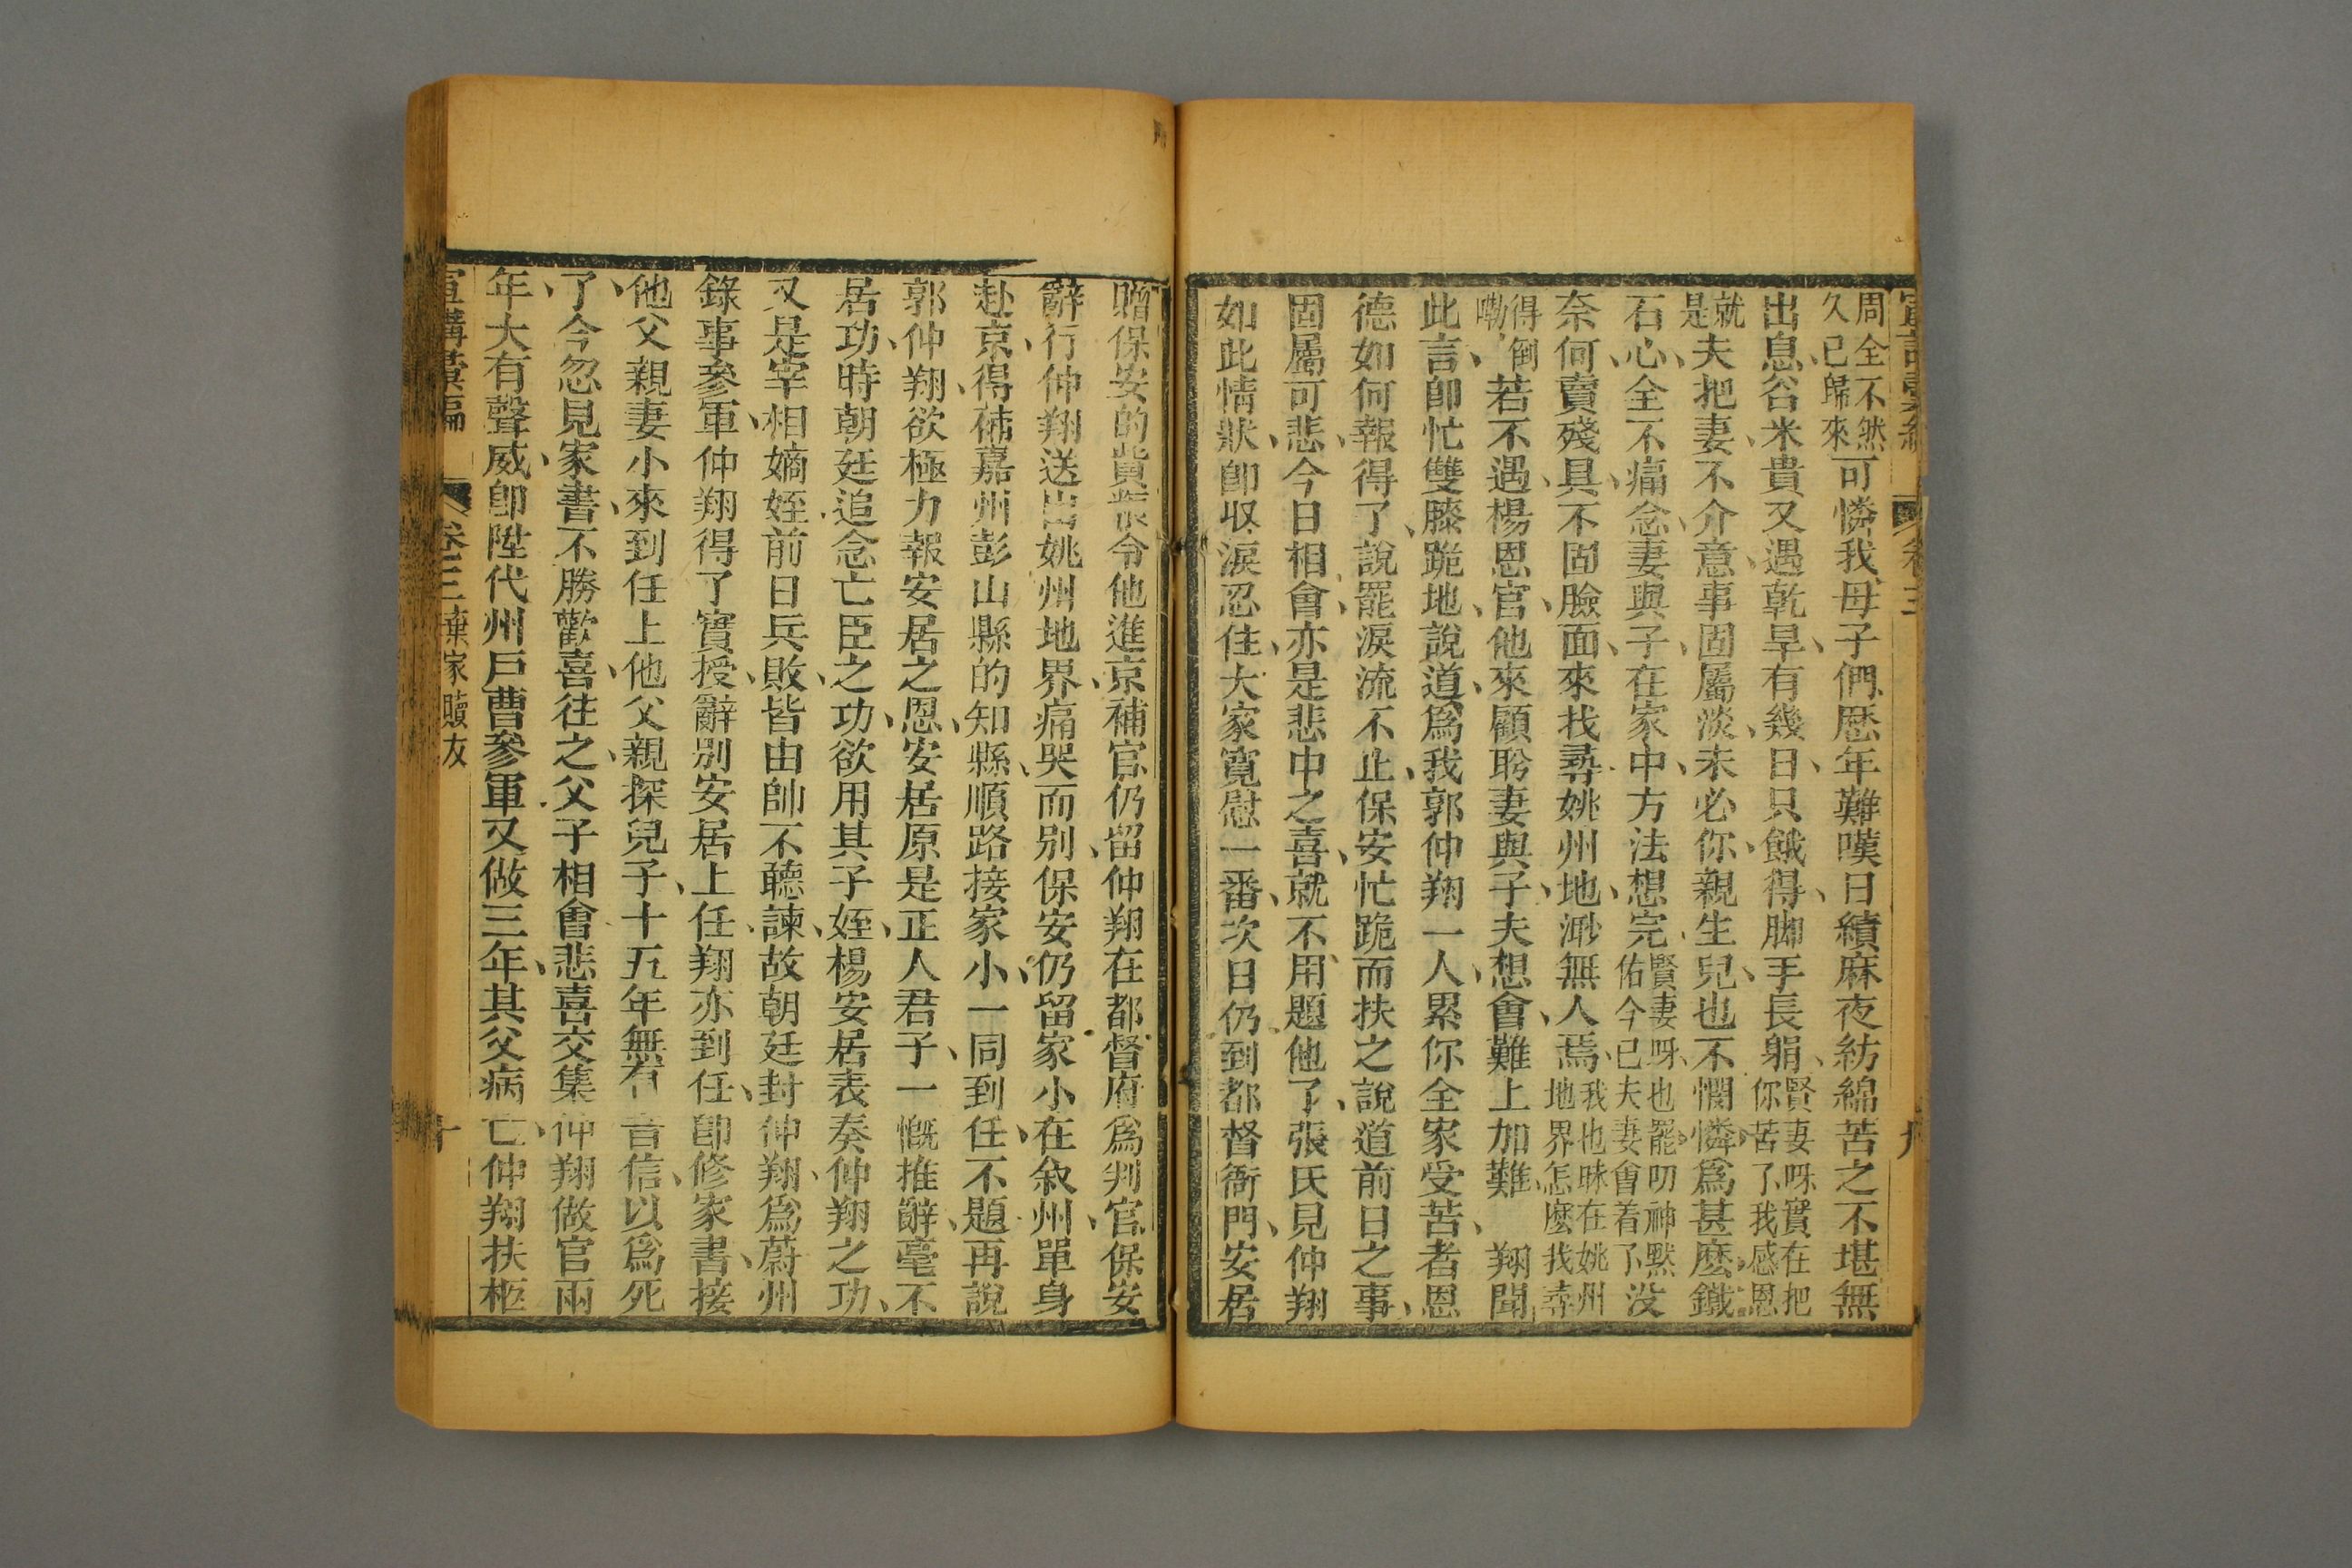 周全不然
久已歸來可憐我母子們歷年難嘆日績麻夜紡綿苦之不堪無
出息谷米貴又遇乾旱有幾日只餓得脚手長躼賢妻呀實在把
你苦了我感恩
就
是夫把妻不介意事固屬淡未必你親生兒也不憫憐爲甚麽鐵
石心全不痛念妻與子在家中方法想完賢妻呀也罷叨神默
佑今已夫妻會着了没
奈何賣殘具不固臉面來找尋姚州地渺無人焉我也昧在姚州
地界怎麽我尋
得倒
嘞若不遇楊恩官他來顧盻妻與子夫想會難上加難 翔聞
此言卽忙雙膝跪地說道爲我郭仲翔一人累你全家受苦者恩
德如何報得了說罷淚流不止保安忙跪而扶之說道前日之事
固屬可悲今日相會亦是悲中之喜就不用題他了張氏見仲翔
如此情狀卽収淚忍住大家寬慰一番次日仍到都督衙門安居
贈保安的貲裝令他進京補官仍留仲翔在都督府爲判官保安
辭行仲翔送出姚州地界痛哭而别保安仍留家小在叙州單身
赴京得補嘉州彭山縣的知縣順路接家小一同到任不題再說
郭仲翔欲極力報安居之恩安居原是正人君子一慨推辭毫不
居功時朝廷追念亡臣之功欲用其子姪楊安居表奏仲翔之功
又是宰相嫡姪前日兵敗皆由帥不聽諫故朝廷封仲翔爲蔚州
錄事參軍仲翔得了實授辭别安居上任翔亦到任卽修家書接
他父親妻小來到任上他父親探兒子十五年無有音信以爲死
了今忽見家書不勝歡喜往之父子相會悲喜交集仲翔做官兩
年大有聲威卽陞代州戶曹參軍又做三年其父病亡仲翔扶柩
宣講彙編 卷三 棄家贖友 十